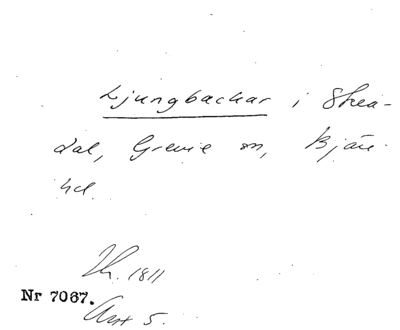 Ljungbackar i Skea-
dal, Grevie sn, Bjäre
hd.
Th. 1811
Nr 7067.
Ant 5.